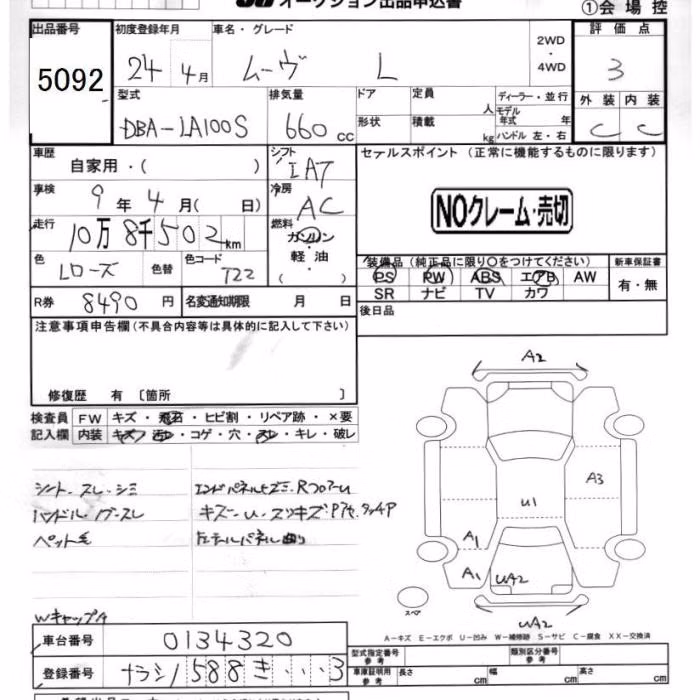 オークション出品申込書
①会場控
出品番号 初度登録年月 車名・グレード 2WD・4WD 評価点
5092 24年4月 ムーヴ L 3
型式 排気量 ドア 定員 人 ディーラー・並行 外装 内装
DBA-LA100S 660cc 形状 積載 kg モデル年式 年 ハンドル 左・右 C C
車歴 自家用・( ) シフト IAT セールスポイント (正常に機能するものに限ります)
車検 9年4月( 日) 冷房 AC NOクレーム・売切
走行 10万8千502km 燃料 ガソリン・軽油・( )
装備品(純正品に限り○をつけてください) 新車保証書
色 Lローズ 色替 色コード T22 PS PW ABS エアB AW 有・無
SR ナビ TV カワ
R券 8490円 名変通知期限 月 日 後日品
注意事項申告欄(不具合内容等は具体的に記入して下さい)
修復歴 有〔箇所 〕
検査員 FW キズ・飛石・ヒビ割・リペア跡・×要
記入欄 内装 キズ・汚れ・コゲ・穴・スレ・キレ・破レ
シート・スレ・シミ
ハンドル
ペット毛
Wキャップ
A2
A3
U1
A1
A1
UA2
UA2
スペア
A-キズ E-エクボ U-凹み W-補修跡 S-サビ C-腐食 XX-交換済
車台番号 0134320
型式指定番号 参考 類別区分番号 参考
登録番号 ナラシノ588き・・・3
車庫証明用 参考 長さ cm 幅 cm 高さ cm